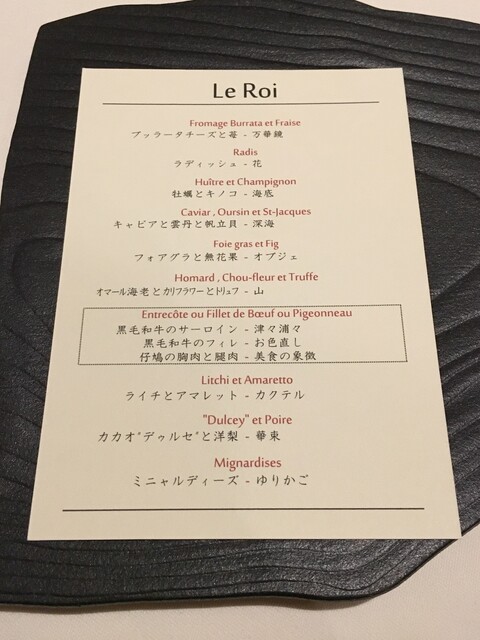 Le Roi
Fromage Burrata et Fraise
ブッラータチーズと苺 - 万華鏡
Radis
ラディッシュ - 花
Huître et Champignon
牡蠣とキノコ - 海底
Caviar , Oursin et St-Jacques
キャビアと雲丹と帆立貝 - 深海
Foie gras et Fig
フォアグラと無花果 - オブジェ
Homard , Chou-fleur et Truffe
オマール海老とカリフラワーとトリュフ - 山
Entrecôte ou Fillet de Bœuf ou Pigeonneau
黒毛和牛のサーロイン - 津々浦々
黒毛和牛のフィレ - お色直し
仔鳩の胸肉と腿肉 - 美食の象徴
Litchi et Amaretto
ライチとアマレット - カクテル
"Dulcey" et Poire
カカオ"デゥルセ"と洋梨 - 華束
Mignardises
ミニャルディーズ - ゆりかご